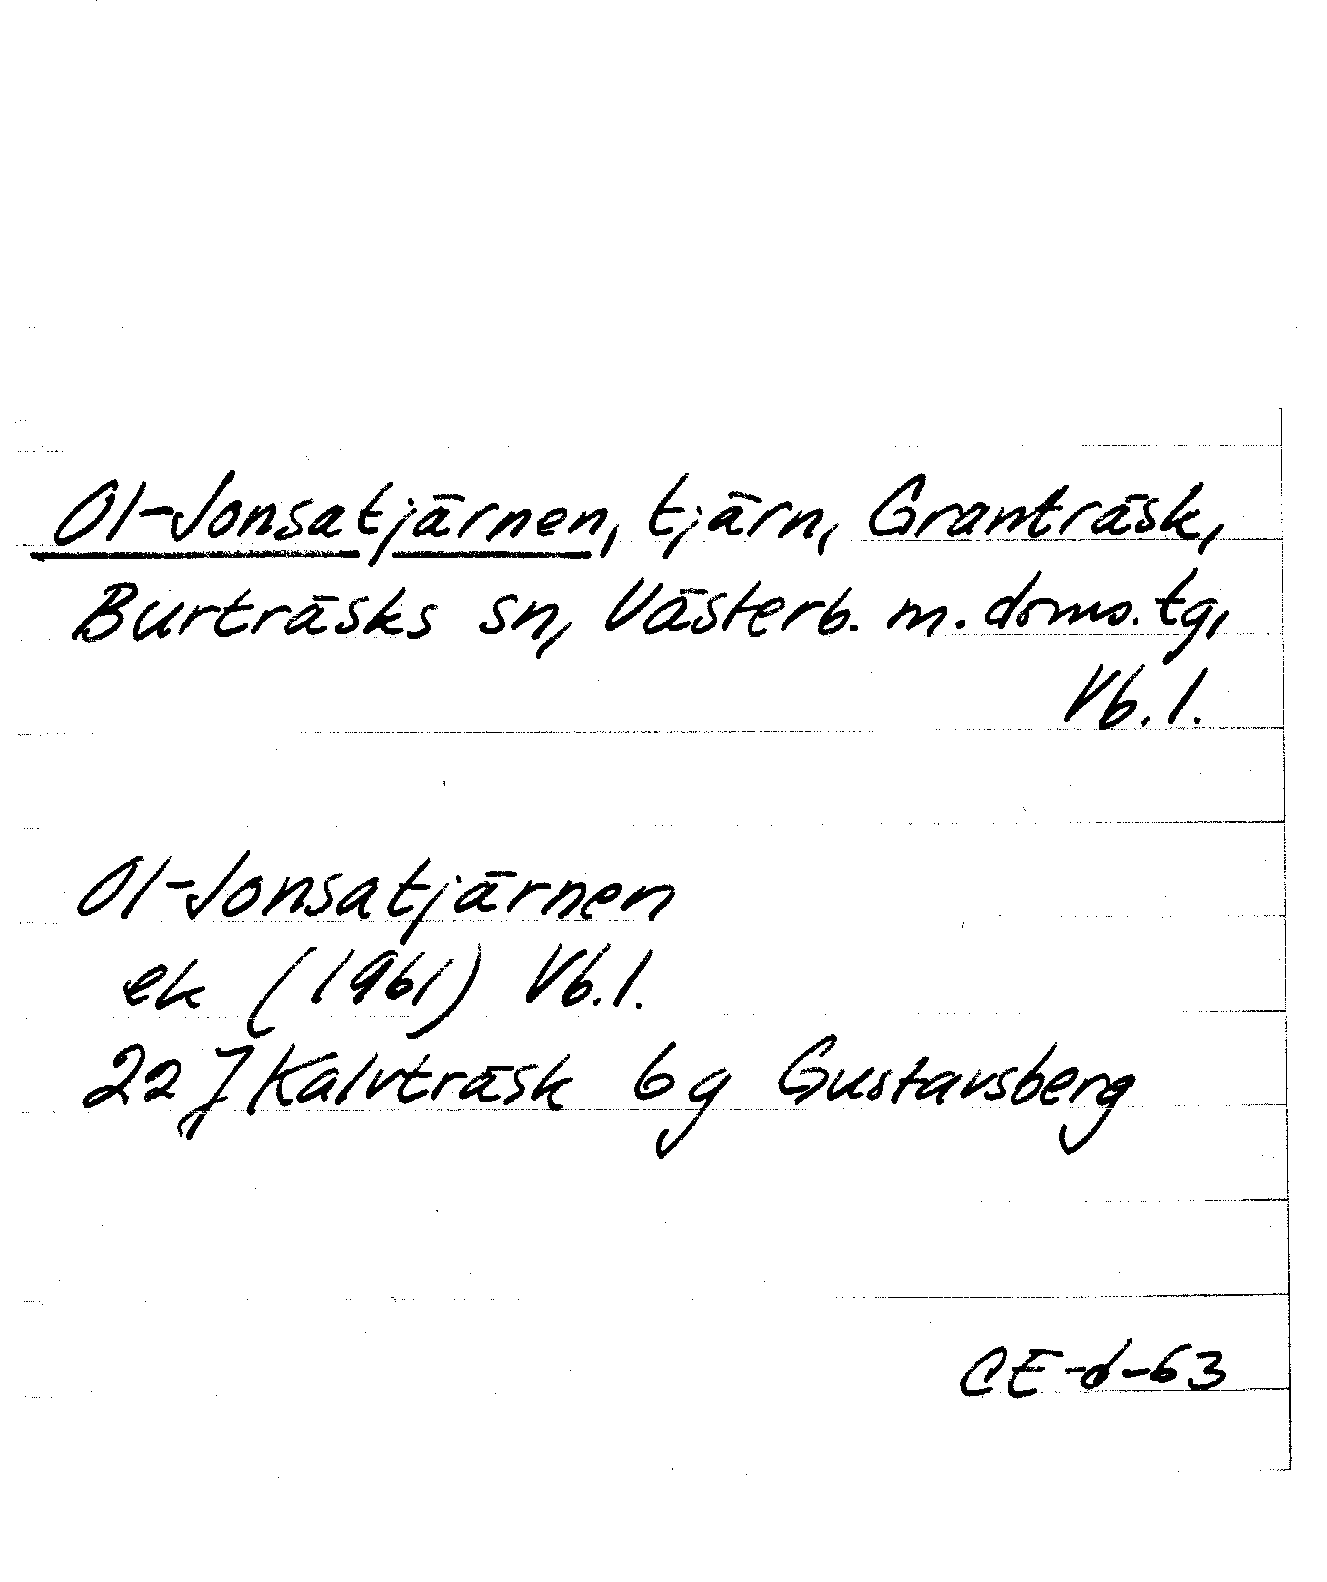 Ol-Jonsatjärnen, tjärn, Granträsk,
Burträsks sn, Västerb. m. doms. tg,
Vb. l.
Ol-Jonsatjärnen
ek (1961) Vb. l.
22 J Kalvträsk 6 g Gustavsberg
CE-d-63